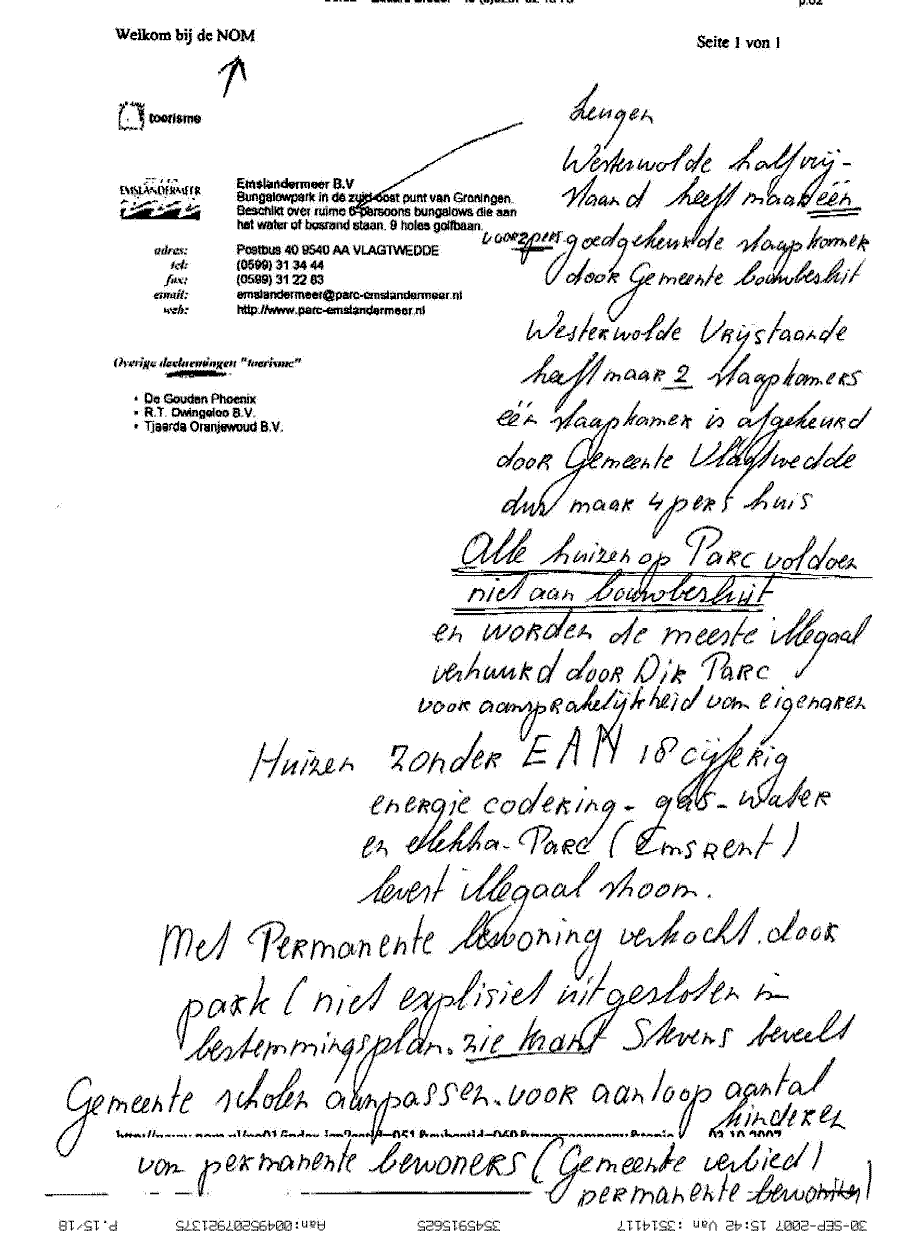 p.02
Welkom bij de NOM
Seite 1 von 1
toerisme
EMSLANDERMEER
Emslandermeer B.V
Bungalowpark in de zuid-oost punt van Groningen.
Beschikt over ruime 6-persoons bungalows die aan
het water of bosrand staan. 9 holes golfbaan.
adres: Postbus 40 9540 AA VLAGTWEDDE
tel: (0599) 31 34 44
fax: (0599) 31 22 63
email: emslandermeer@parc-emslandermeer.nl
web: http://www.parc-emslandermeer.nl
Overige deelnemingen "toerisme"
• De Gouden Phoenix
• R.T. Dwingeloo B.V.
• Tjaarda Oranjewoud B.V.
Leugen
Westerwolde halfvrij-
staand heeft maar één
voor 2 pers goedgekeurde slaapkamer
door Gemeente bouwbesluit
Westerwolde Vrijstaande
heeft maar 2 slaapkamers
één slaapkamer is afgekeurd
door Gemeente Vlagtwedde
dus maar 4 pers huis
Alle huizen op Parc voldoen
niet aan bouwbesluit
en worden de meeste illegaal
verhuurd door Dir Parc
voor aansprakelijkheid van eigenaren
Huizen zonder EAN 18 cijferig
energie codering - gas - water
en elektra - Parc (Emsrent)
levert illegaal stroom.
Met Permanente bewoning verkocht. door
park (niet explisiet uitgesloten in
bestemmingsplan. zie krant Stevens beveelt
Gemeente scholen aanpassen. voor aanloop aantal
kinderen
03.10.2007
van permanente bewoners (Gemeente verbied)
permanente bewoners)
30-SEP-2007 15:42 Van :3514117
3545915625
Aan:0049592079213751
P.15/18